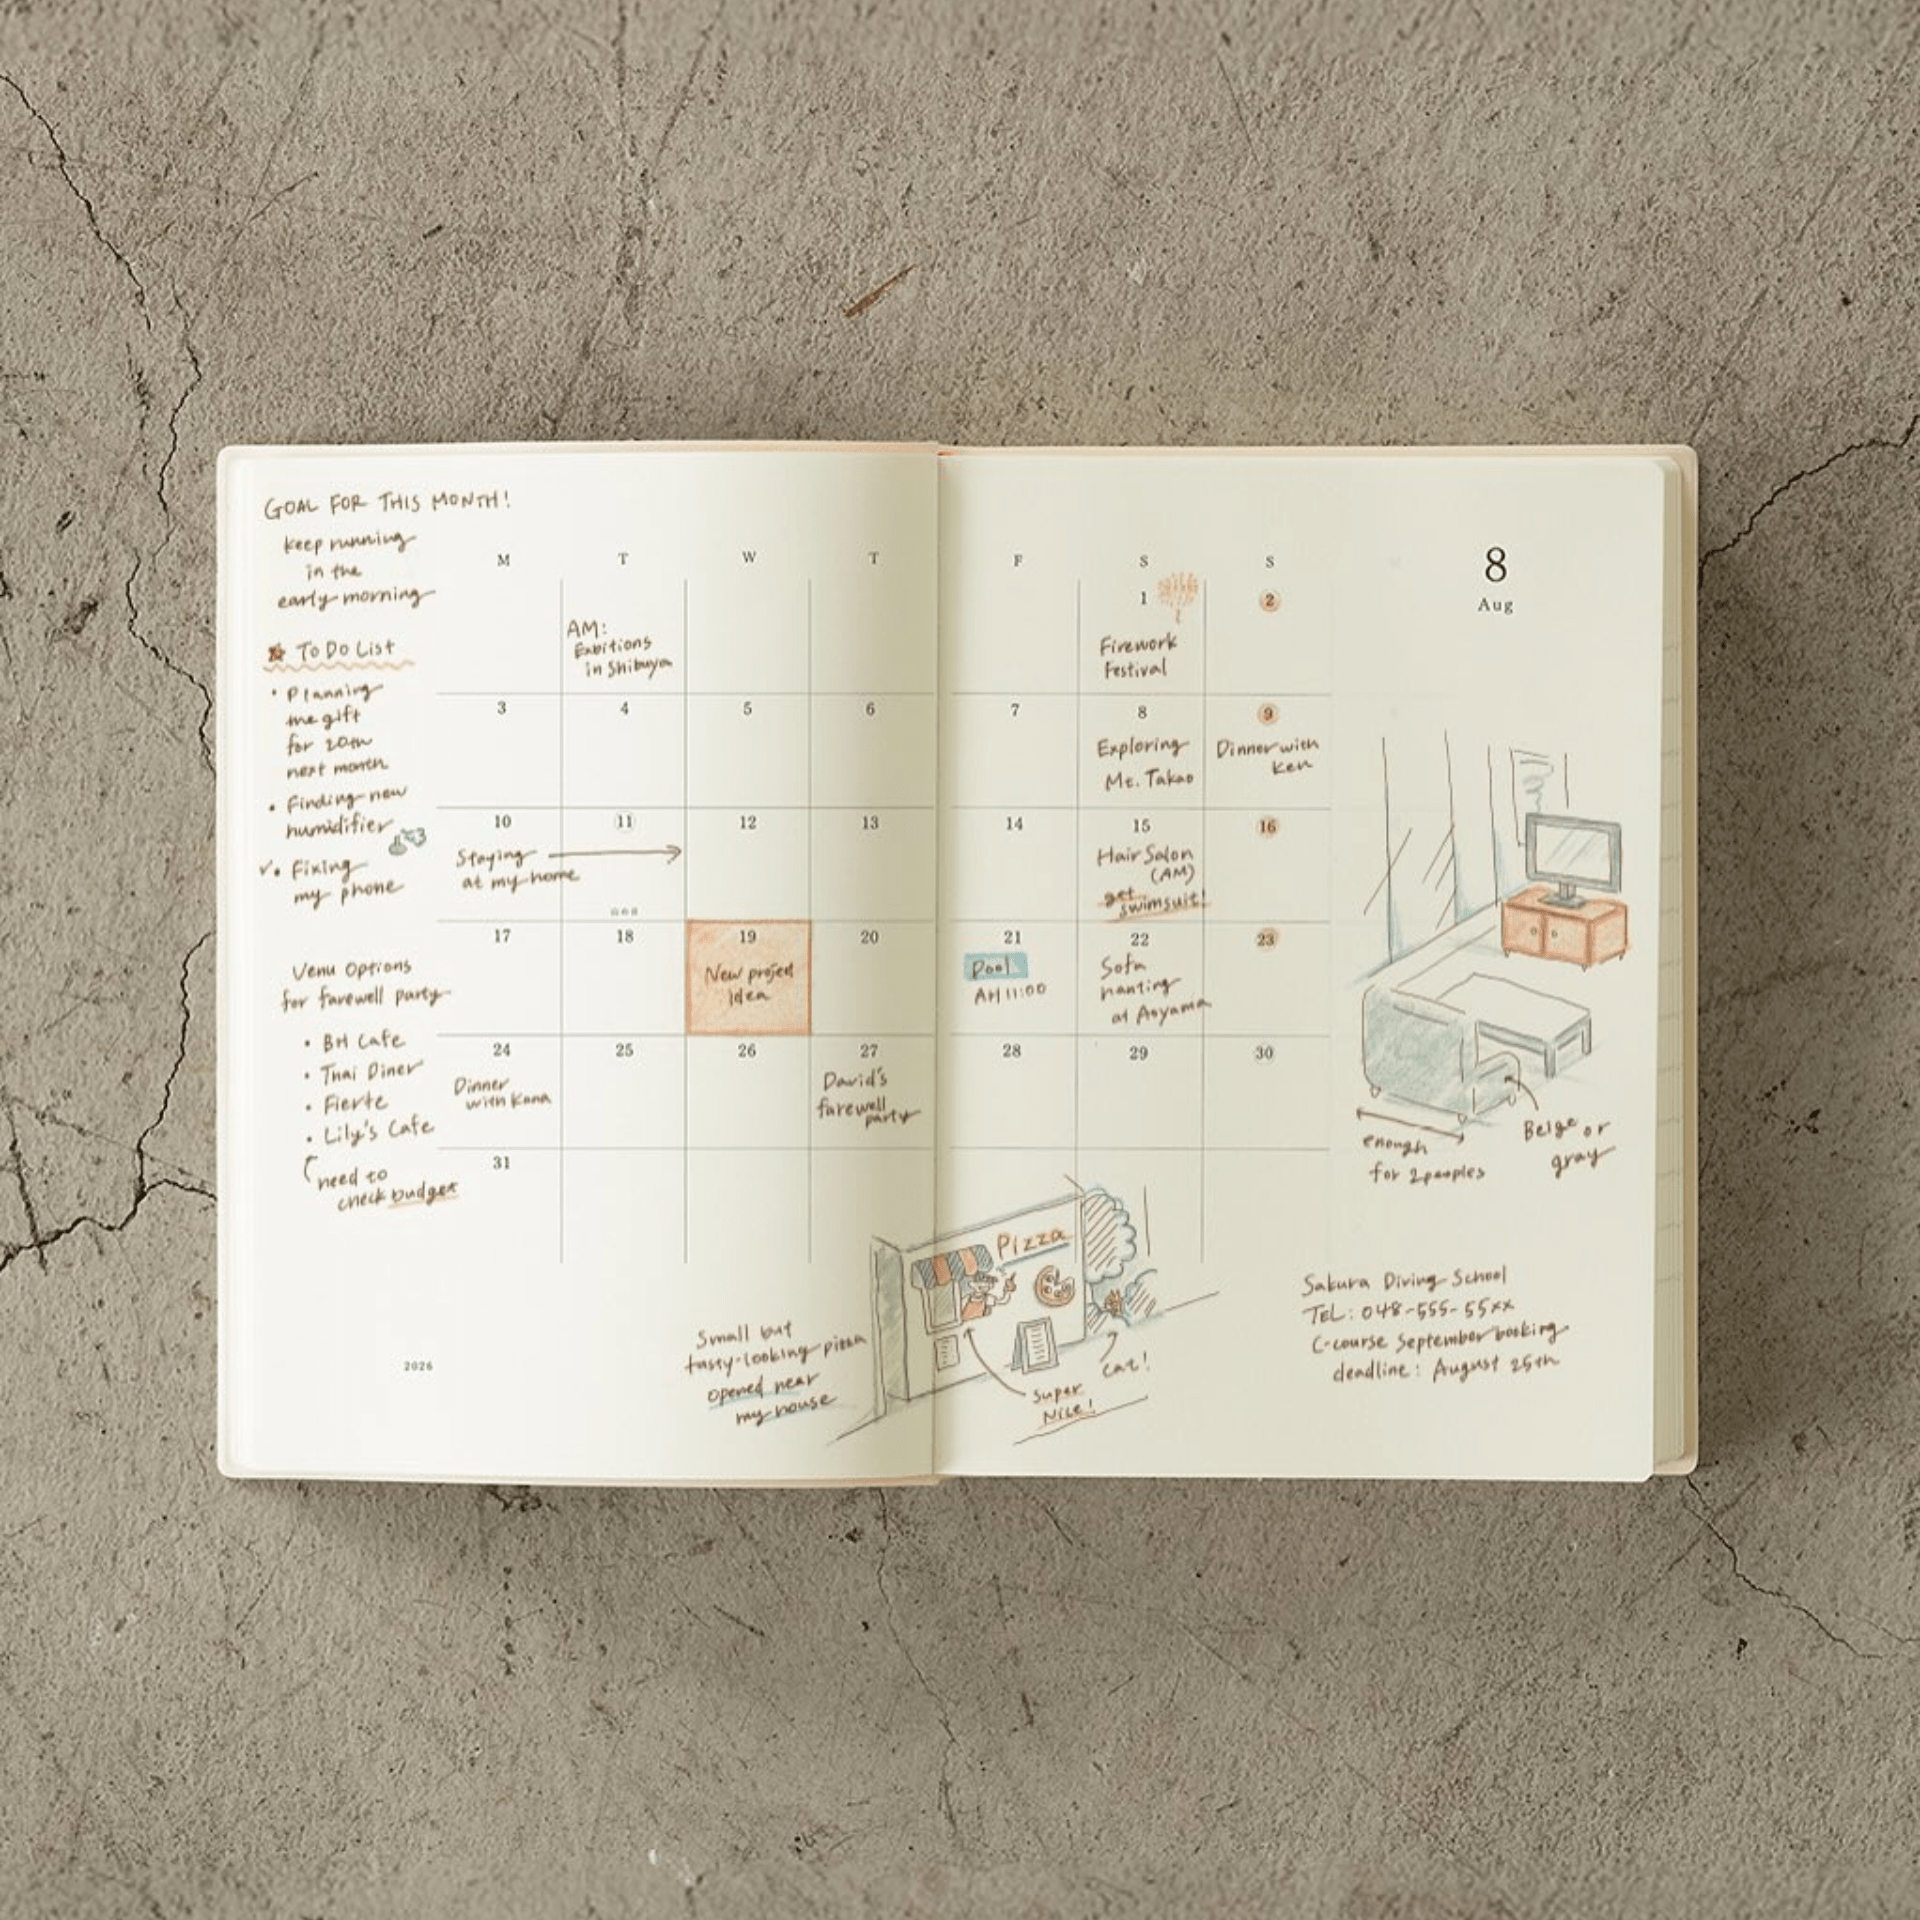 GOAL FOR THIS MONTH!
keep running
in the
early morning
To Do List
• Planning
the gift
for 20th
next month
• Finding new
humidifier
✓• Fixing
my phone
Venu Options
for farewell party
• BH Cafe
• Thai Diner
• Fierte
• Lily's Cafe
need to
check budget
2026
M T W T F S S
8
Aug
AM:
Exbitions
in Shibuya
1
Firework
Festival
2
3 4 5 6 7 8 9
Exploring
Mt. Takao
Dinner with
Ken
10 11 12 13 14 15 16
Staying
at my home
Hair Salon
(AM)
get
swimsuit!
17 18 19 20 21 22 23
New project
idea
Pool
AM 11:00
Sofa
hanting
at Aoyama
24 25 26 27 28 29 30
Dinner
with Kana
David's
farewell
party
31
Beige or
gray
enough
for 2 peoples
Pizza
Small but
tasty-looking pizza
opened near
my house
super
Nice!
cat!
Sakura Diving School
TEL: 048-555-55xx
C-course September booking
deadline: August 25th